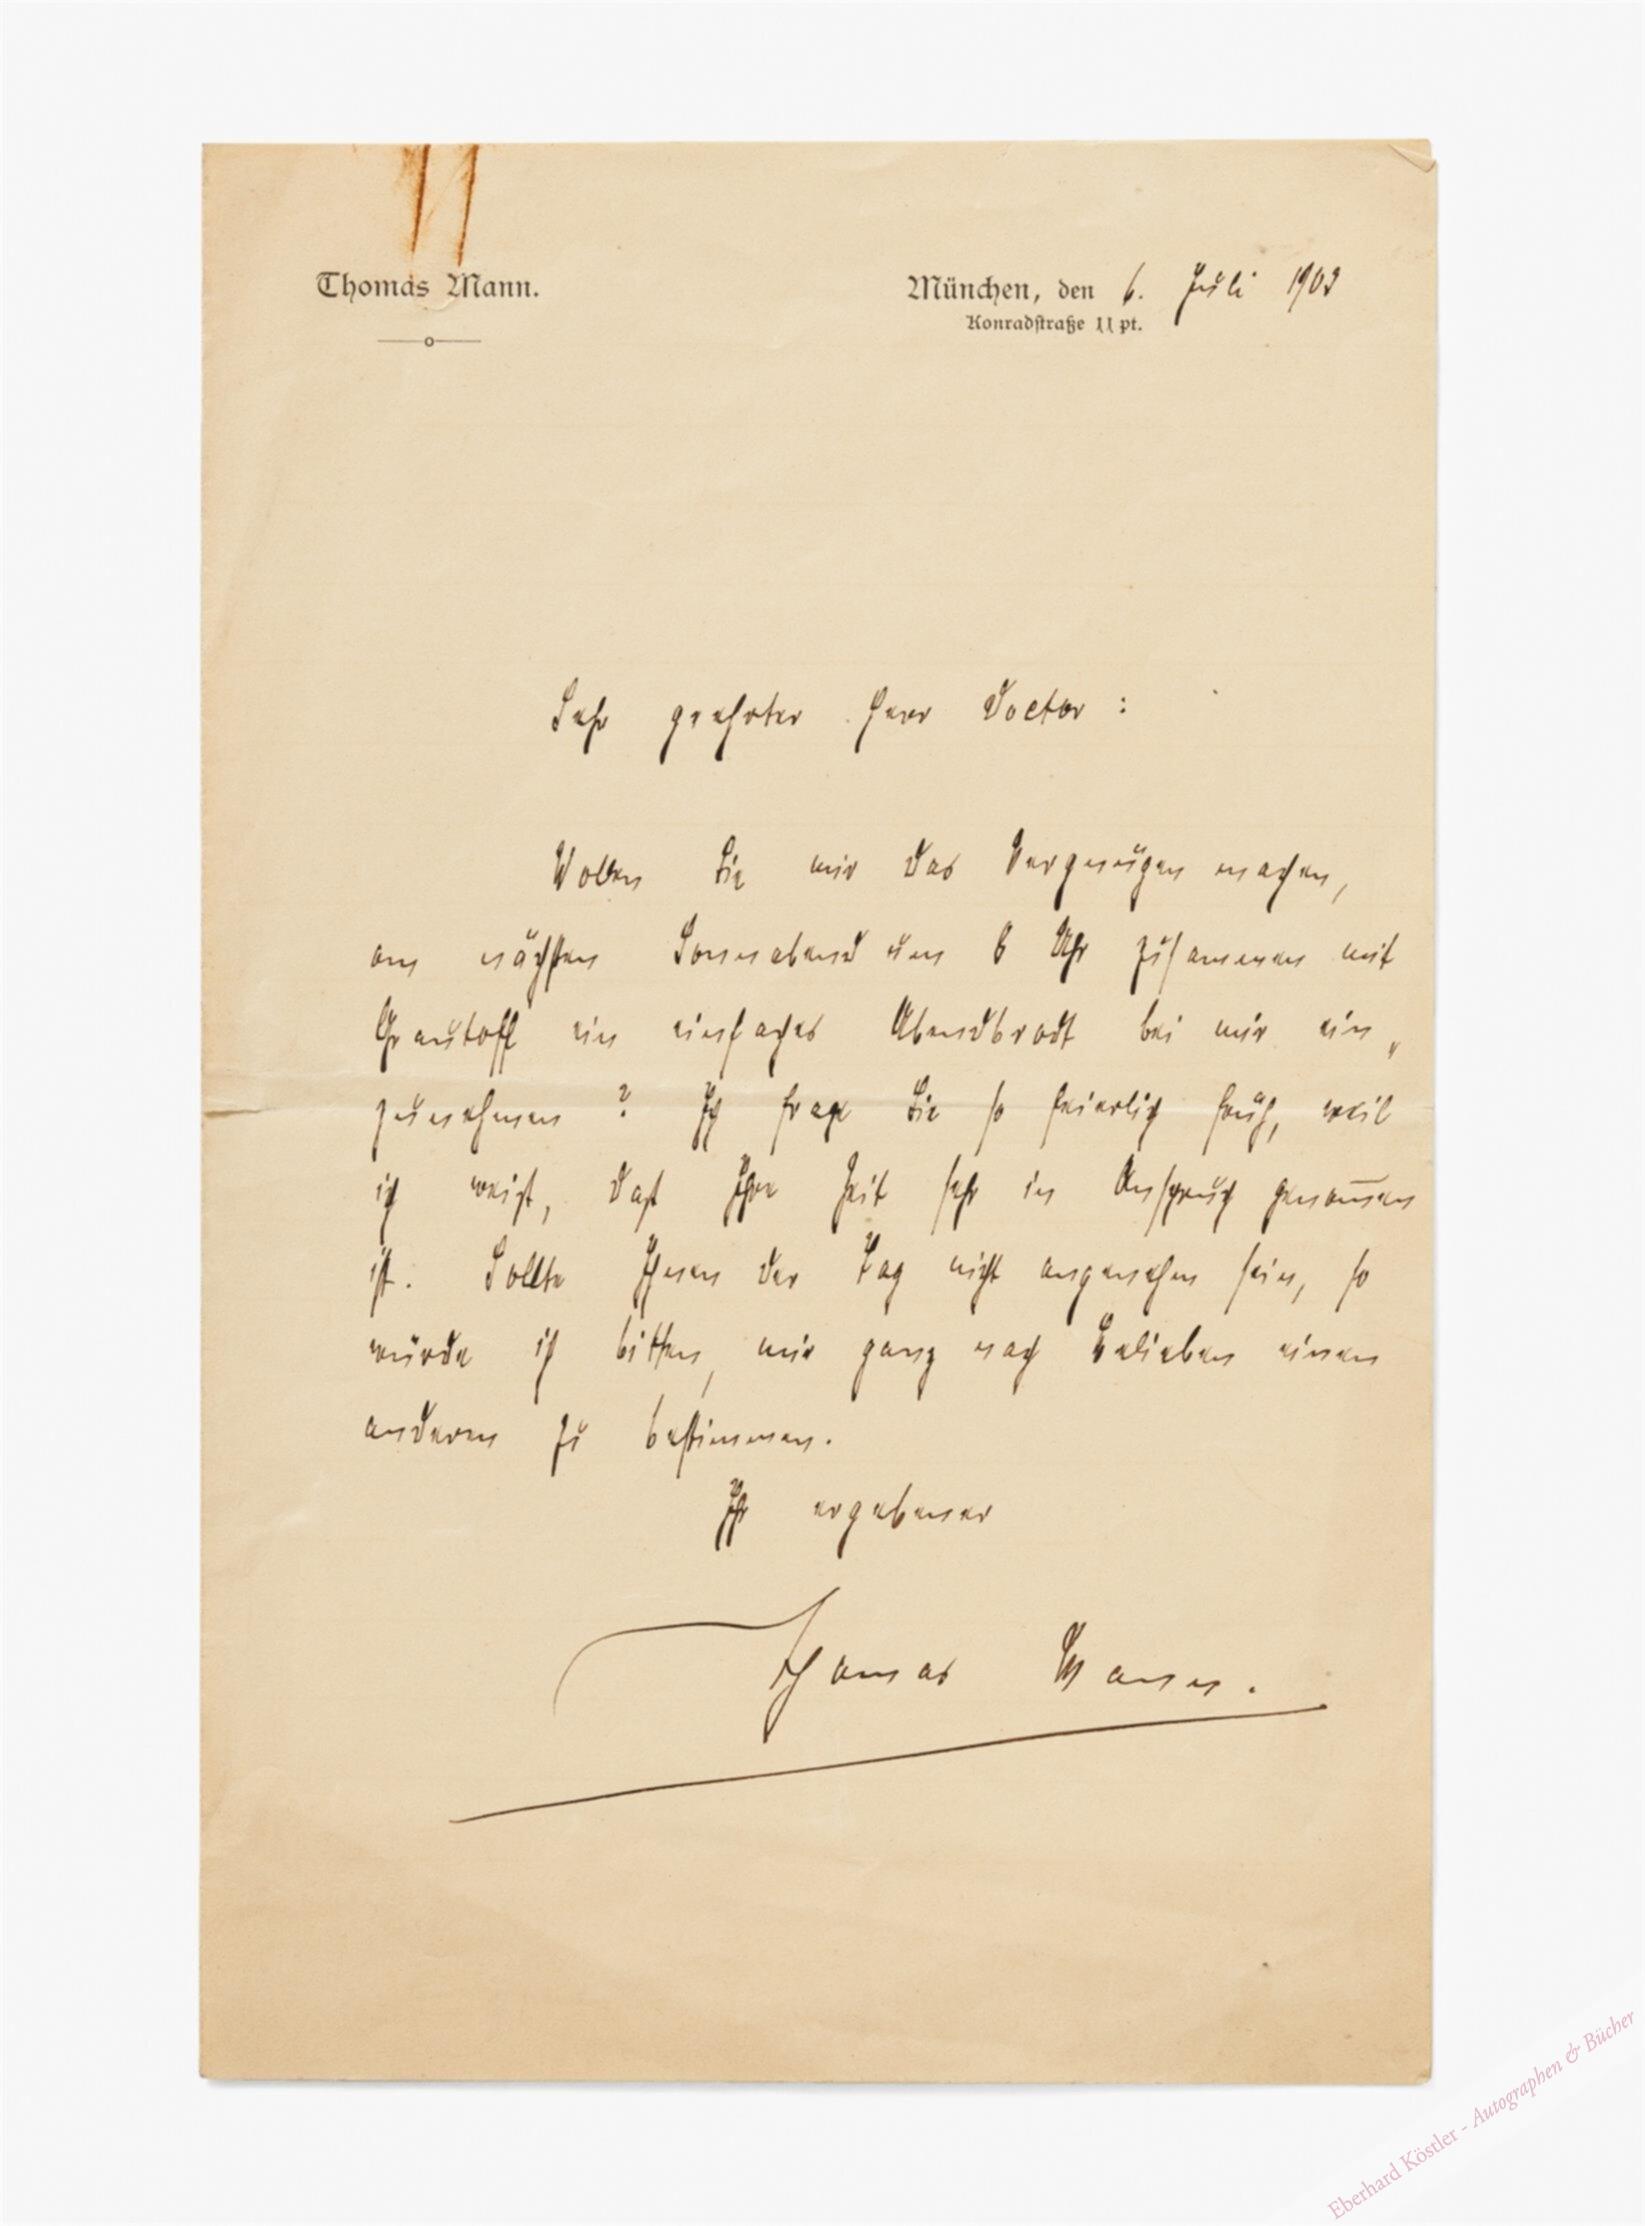 Thomas Mann.
München, den 6. Juli 1903
Konradstraße 11 pt.
Sehr geehrter Herr Doctor:
Wollen Sie mir das Vergnügen machen,
am nächsten Sonnabend um 8 Uhr zusammen mit
Grautoff ein einfaches Abendbrodt bei mir ein-
zunehmen? Ich frage Sie so feierlich früh, weil
ich weiß, daß Ihre Zeit sehr in Anspruch genom̅en
ist. Sollte Ihnen der Tag nicht angenehm sein, so
würde ich bitten, mir ganz nach Belieben einen
anderen zu bestimmen.
Ihr ergebener
Thomas Mann.
Eberhard Köstler - Autographen & Bücher